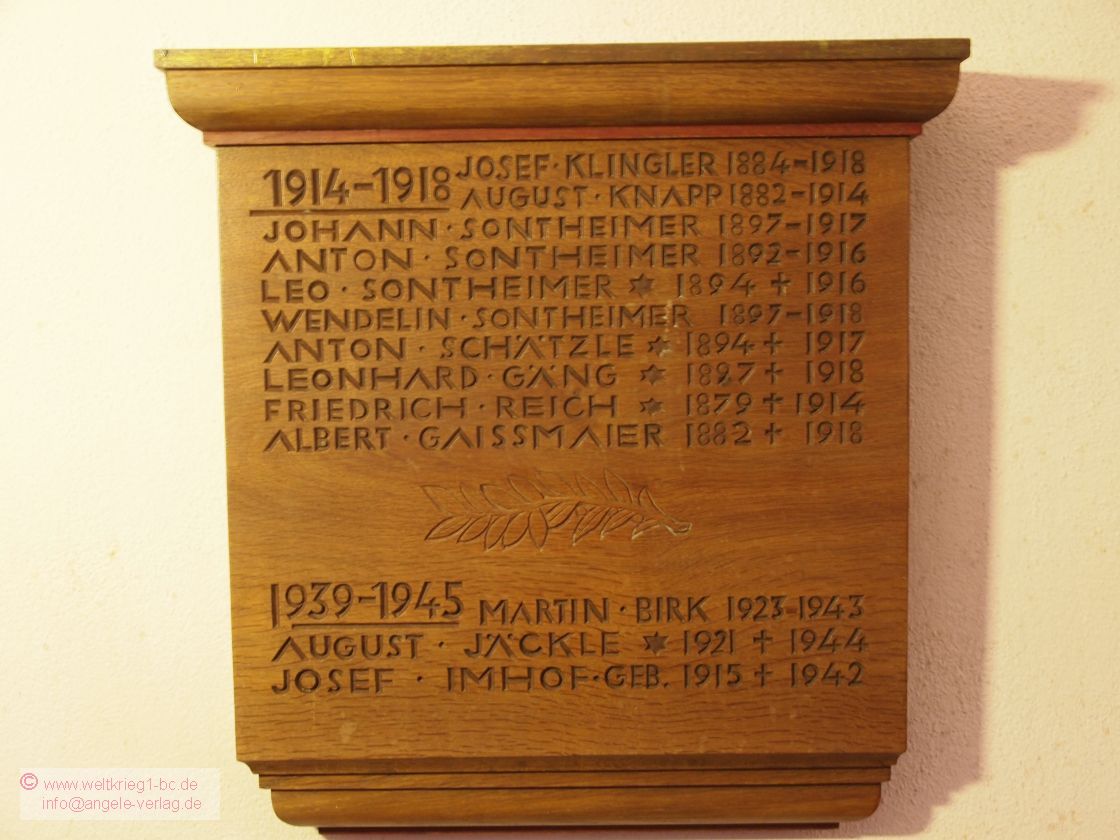 1914-1918 JOSEF · KLINGLER 1884-1918
AUGUST · KNAPP 1882-1914
JOHANN · SONTHEIMER 1897-1917
ANTON · SONTHEIMER 1892-1916
LEO · SONTHEIMER ✶ 1894 ✝ 1916
WENDELIN · SONTHEIMER 1897-1918
ANTON · SCHÄTZLE ✶ 1894 ✝ 1917
LEONHARD · GÄNG ✶ 1897 ✝ 1918
FRIEDRICH · REICH ✶ 1879 ✝ 1914
ALBERT · GAISSMAIER 1882 ✝ 1918
1939-1945 MARTIN · BIRK 1923-1943
AUGUST · JÄCKLE ✶ 1921 ✝ 1944
JOSEF · IMHOF · GEB. 1915 ✝ 1942
© www.weltkrieg1-bc.de
info@angele-verlag.de